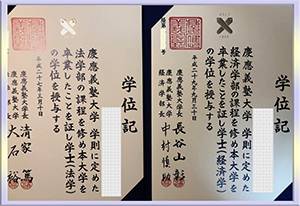 学位記
慶應義塾大学 学則に定めた
法学部の課程を修め本大学を
卒業したことを証し学士(法学)
の学位を授与する
平成二十七年三月
慶應義塾大学長
清家 篤
慶應義塾大学法学部長
大石 裕
学位記
慶應義塾大学 学則に定めた
経済学部の課程を修め本大学を
卒業したことを証し学士(経済学)
の学位を授与する
平成二十九年三月
慶應義塾大学長
長谷山 彰
慶應義塾大学
経済学部長
中村 慎助